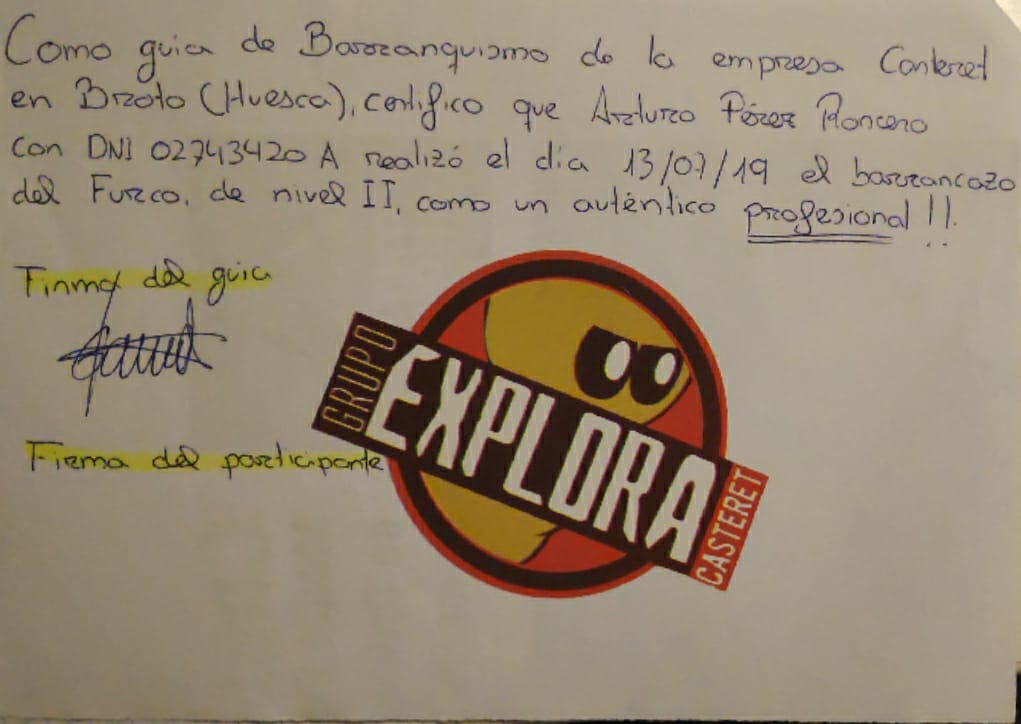 Como guia de Barranquismo de la empresa Casteret
en Broto (Huesca), certifico que Arturo Pérez Roncero
con DNI 02743420 A realizó el día 13/07/19 el barrancazo
del Furco, de nivel II, como un auténtico profesional !!
Firma del guia
GRUPO
EXPLORA
CASTERET
Firma del participante